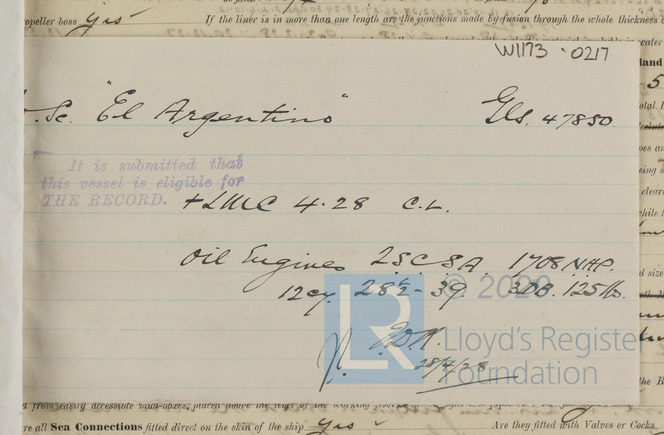 propeller boss yes If the liner is in more than one length are the junctions made by fusion through the whole thickness
W1173 - 0217
Sc. "El Argentino" Gls. 47850
It is submitted that
this vessel is eligible for
THE RECORD.
+ LMC 4.28 C.L.
Oil Engines 2SCSA. 1708 NHP.
12cy. 28½ - 39 3DB. 125 lb.
28/4/28
© 2020
LR
Lloyd's Register
Foundation
from easily accessible
are all Sea Connections fitted direct on the skin of the ship yes Are they fitted with Valves or Cocks